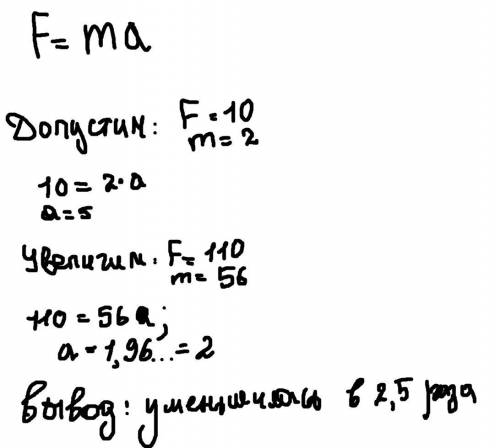 F = ma
Допустим: F = 10
m = 2
10 = 2·a
a = 5
Увеличим: F = 110
m = 56
110 = 56a;
a = 1,96... = 2
Вывод: уменшилась в 2,5 раза